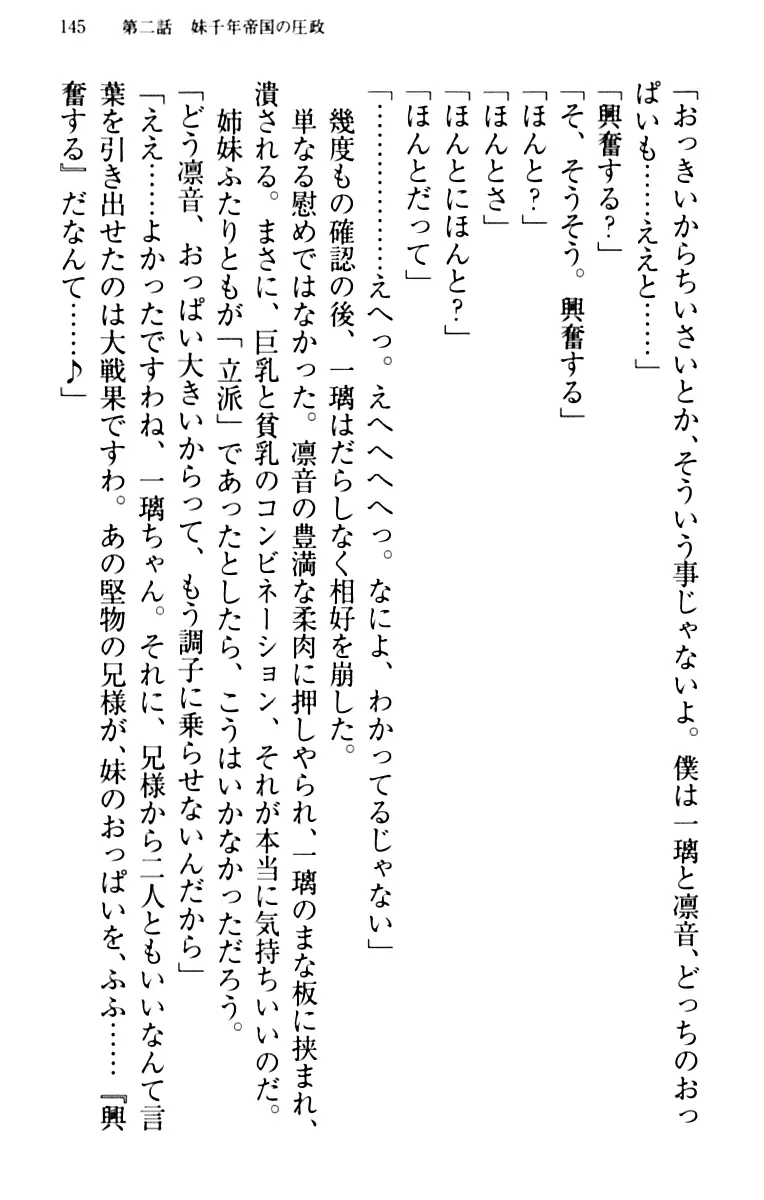 145　第二話　妹千年帝国の圧政
「おっきいからちいさいとか、そういう事じゃないよ。僕は一璃と凛音、どっちのおっ
ぱいも……ええと……」
「興奮する？」
「そ、そうそう。興奮する」
「ほんと？」
「ほんとさ」
「ほんとにほんと？」
「ほんとだって」
「…………………えへっ。えへへへへっ。なによ、わかってるじゃない」
幾度もの確認の後、一璃はだらしなく相好を崩した。
単なる慰めではなかった。凛音の豊満な柔肉に押しやられ、一璃のまな板に挟まれ、
潰される。まさに、巨乳と貧乳のコンビネーション、それが本当に気持ちいいのだ。
姉妹ふたりともが「立派」であったとしたら、こうはいかなかっただろう。
「どう凛音、おっぱい大きいからって、もう調子に乗らせないんだから」
「ええ……よかったですわね、一璃ちゃん。それに、兄様から二人ともいいなんて言
葉を引き出せたのは大戦果ですわ。あの堅物の兄様が、妹のおっぱいを、ふふ……『興
奮する』だなんて……♪」